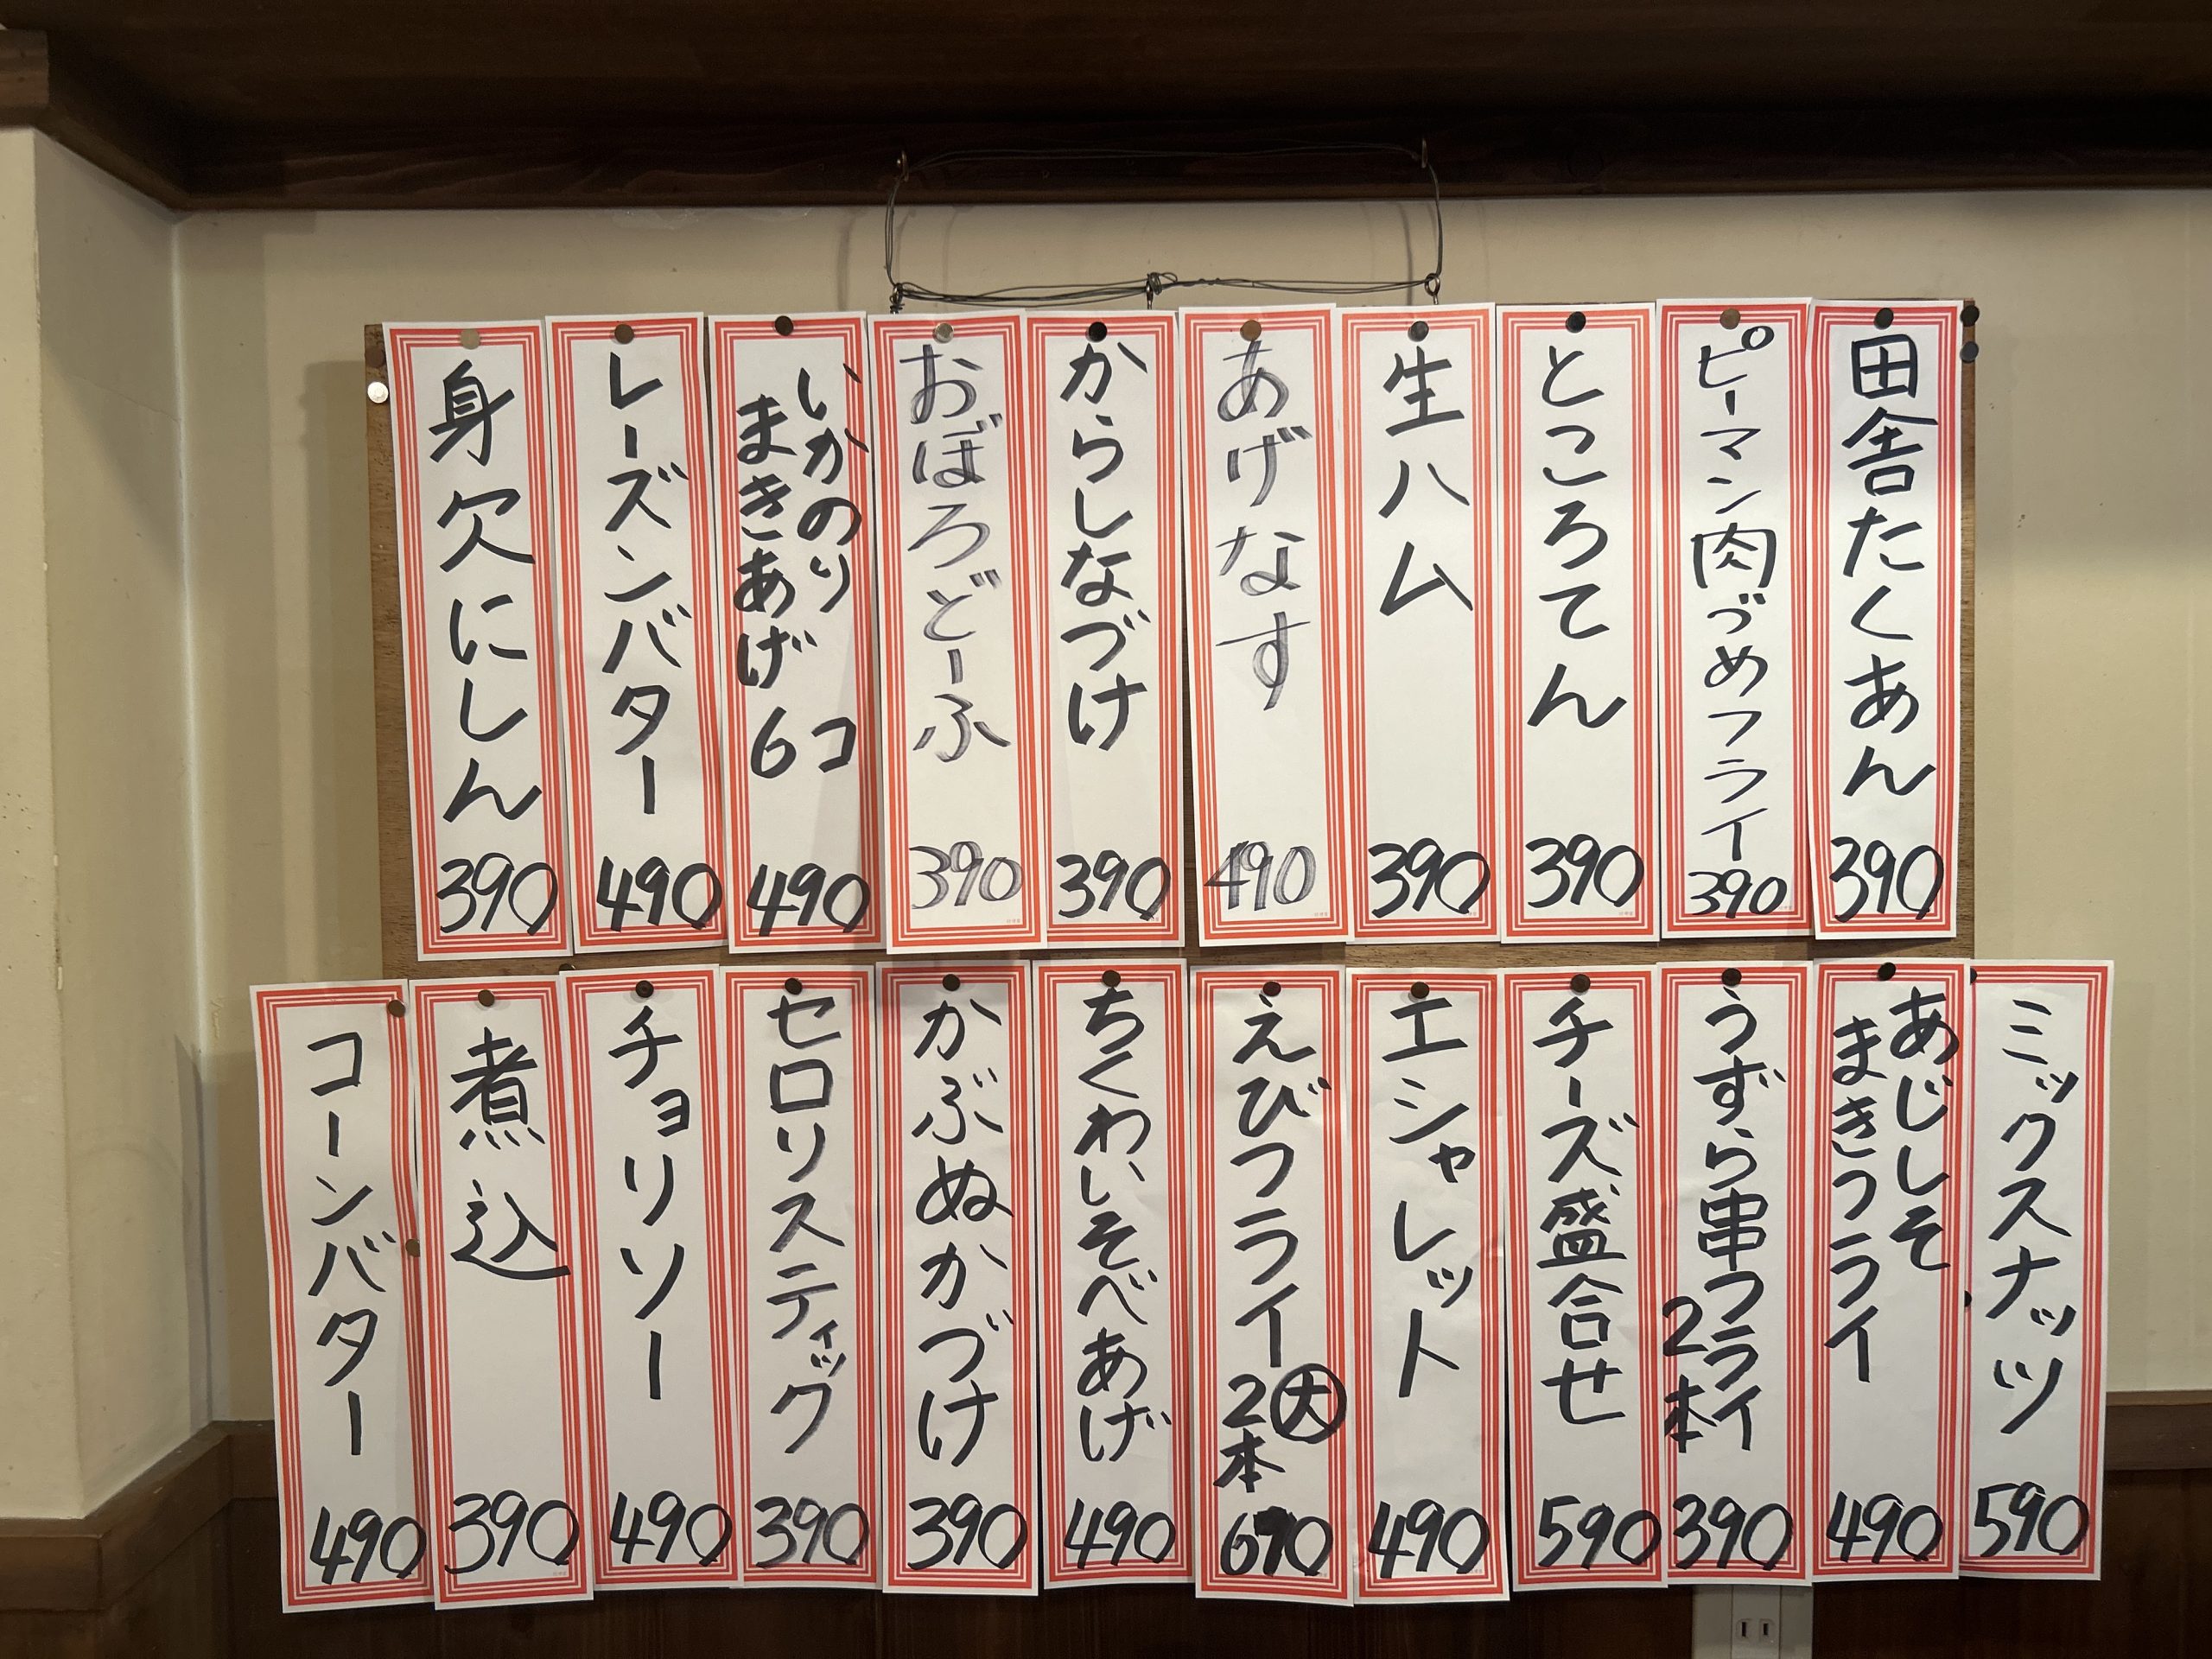 田舎たくあん
390
ピーマン肉づめフライ
390
ところてん
390
生ハム
390
あげなす
490
からしなづけ
390
おぼろどーふ
390
いかのり
まきあげ
6コ
490
レーズンバター
490
身欠にしん
390
ミックスナッツ
590
あじしそ
まきフライ
490
うずら串フライ
2本
390
チーズ盛合せ
590
エシャレット
490
えびフライ大
2本
690
ちくわいそべあげ
490
かぶぬかづけ
390
セロリスティック
390
チョリソー
490
煮込
390
コーンバター
490